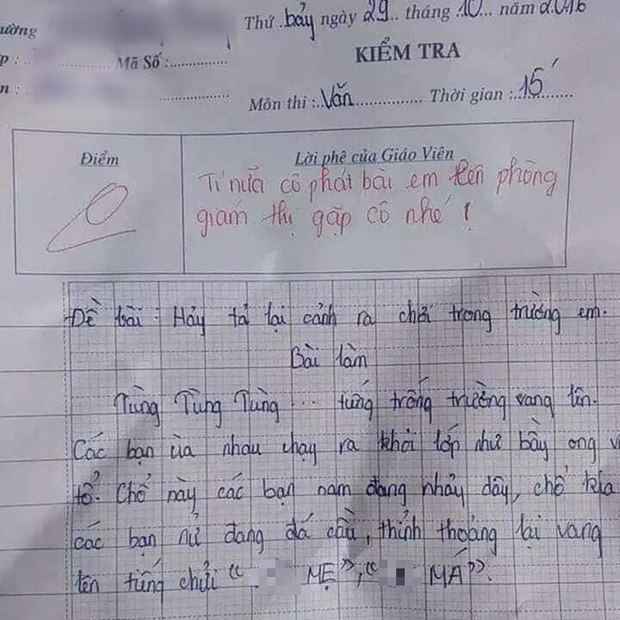 ường
Thứ bảy ngày 29 tháng 10 năm 2016
p : Mã Số :
KIỂM TRA
n :
Môn thi : Văn Thời gian : 15'
Điểm
Lời phê của Giáo Viên
0
Tí nữa cô phát bài em lên phòng
giám thị gặp cô nhé !
Đề bài : Hảy tả lại cảnh ra chơi trong trường em.
Bài làm
Tùng Tùng Tùng ... tiếng trống trường vang lên.
Các bạn ùa nhau chạy ra khỏi lớp như bầy ong v
tổ. Chổ này các bạn nam đang nhảy dây, chổ kia
các bạn nử đang đá cầu, thỉnh thoảng lại vang
lên tiếng chửi " MẸ", " MÁ".